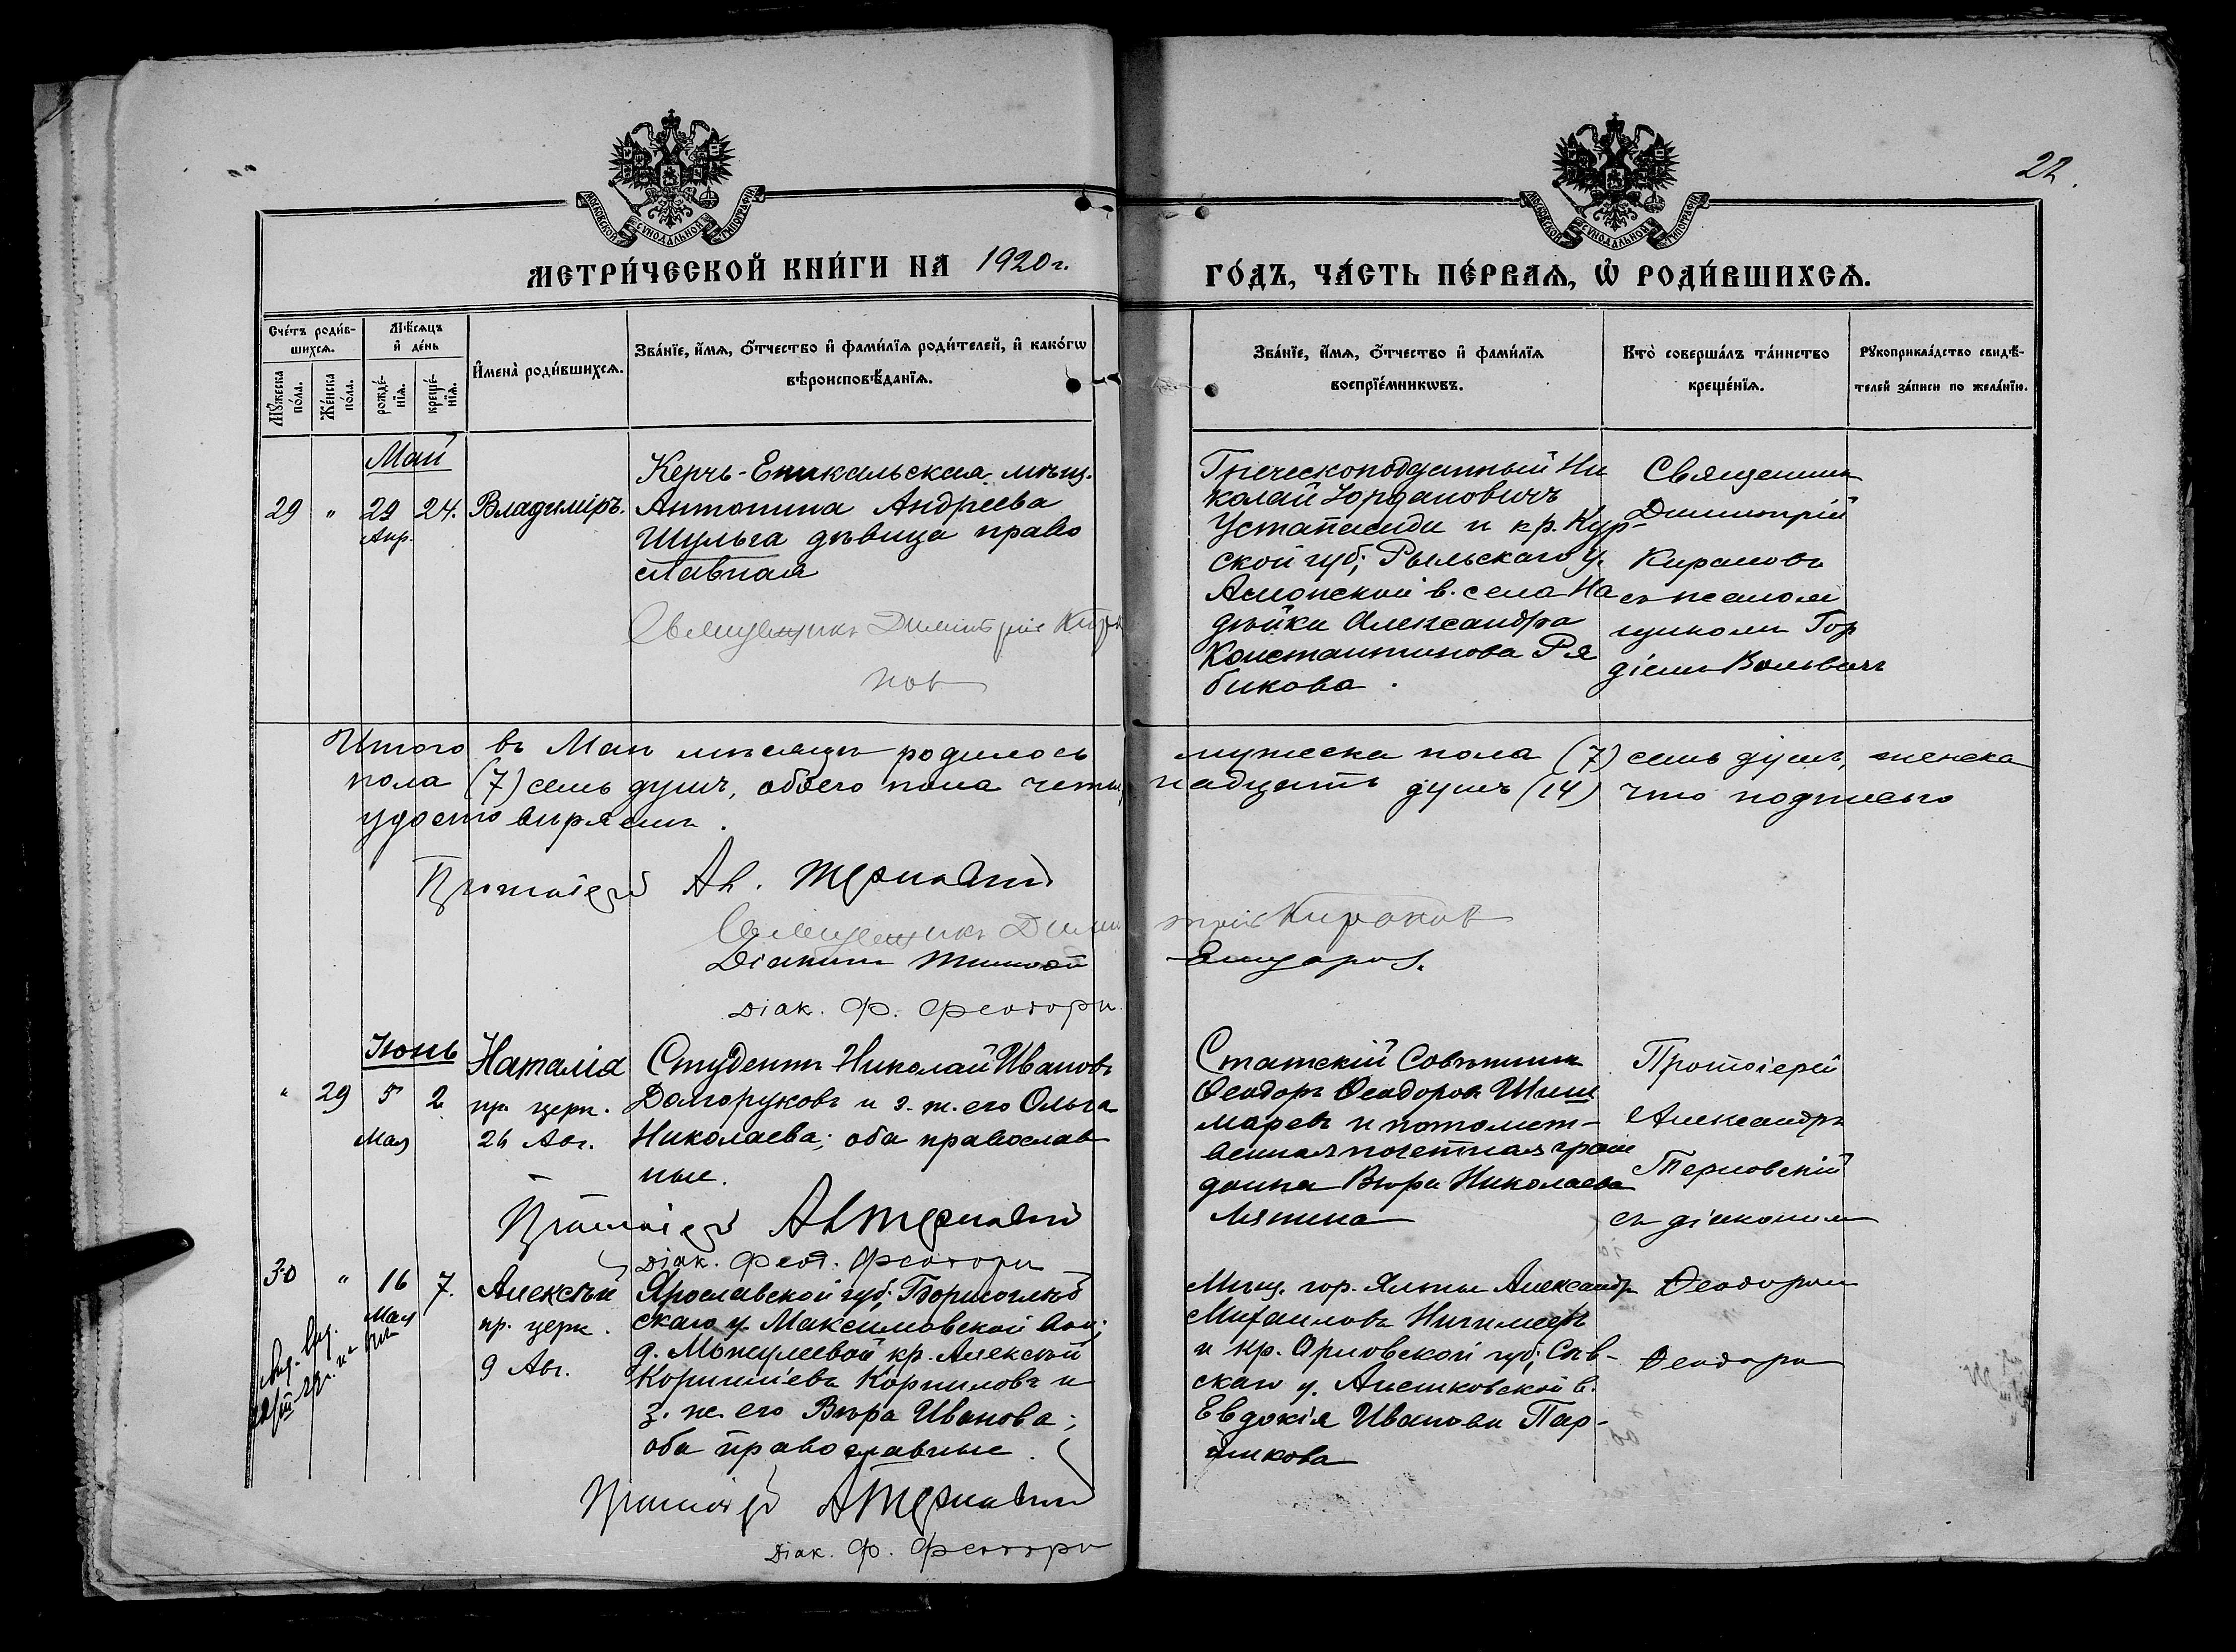 22.
МОСКОВСКОЙ СѴНОДАЛЬНОЙ ТИПОГРАФІИ
МОСКОВСКОЙ СѴНОДАЛЬНОЙ ТИПОГРАФІИ
МЕТРИ́ЧЕСКОЙ КНИ́ГИ НА 1920 г.
ГО́ДЪ, ЧА́СТЬ ПЕ́РВАѦ, Ѡ҆ РОДИ́ВШИХСѦ.
Сче́тъ роди́в-
шихсѧ.
Мꙋ́жеска по́ла.
Же́нска по́ла.
Мѣ́сѧцъ
и҆ де́нь
рожде́-
нїѧ.
креще́-
нїѧ.
И҆мена̀ роди́вшихсѧ.
Зва́нїе, и҆́мѧ, ѻ҆́тчество и҆ фами́лїѧ роди́телей, и҆ како́гѡ
вѣроисповѣ́данїѧ.
Зва́нїе, и҆́мѧ, ѻ҆́тчество и҆ фами́лїѧ
воспрїе́мникѡвъ.
Кто̀ соверша́лъ та́инство
креще́нїѧ.
Рꙋкоприкла́дство свидѣ́-
телей за́писи по жела́нїю.
Май
29 " 29 24. Владиміръ.
Апр.
Керчь-Еникальская мѣщ.
Антонина Андреева
Шульга дѣвица право
славная
Священникъ Димитрій Кира
нов
Греческоподданный Ни
колай Іордановичъ
и кр. Кур-
ской губ; Рыльскаго у.
в. села На
дѣйки Александра
Константинова Ря
бикова.
Священник
Димитрій
Кирановъ
съ псалом
щиком Гор
діем
Итого въ Маѣ мѣсяцѣ родилось мужеска пола (7) семь душъ, женска
пола (7) семь душъ, обоего пола четыр надцать душъ (14) что подписью
удостовѣряемъ.
Протоіерей Ал. Терновскій
Священникъ Димитрій Киранов
Діаконъ
Діак. Ф. Феохари
Іюнь
" 29 5 2 Наталія
Мая
пр. церк.
26 Авг.
Студентъ Николай Ивановъ
Долгоруковъ и з. ж. его Ольга
Николаева; оба православ
ные.
Протоіерей Ал Терновскій
Діак. Феод. Феохари
Статскій Совѣтник
Ѳеодоръ Ѳеодоров Шиш
маревъ и потомст-
венная почетная граж
данка Вѣра Николаева
Ляпина
Протоіерей
Александръ
Терновскій
съ діакономъ
30 " 16 7. Алексѣй
Мая
пр. церк.
9 Авг.
Ярославской губ;
скаго у. Максимовской вол;
д. кр. Алексѣй
Корниліевъ Корниловъ и
з. ж. его Вѣра Иванова;
оба православные.
Протоіерей А Терновскій
Діак. Ф. Феохари
Мѣщ. гор. Ялты Александр
Михаиловъ
и кр. Орловской губ; Сѣв-
скаго у. в.
Евдокія Иванова Пар-
шикова
Ѳеодоромъ